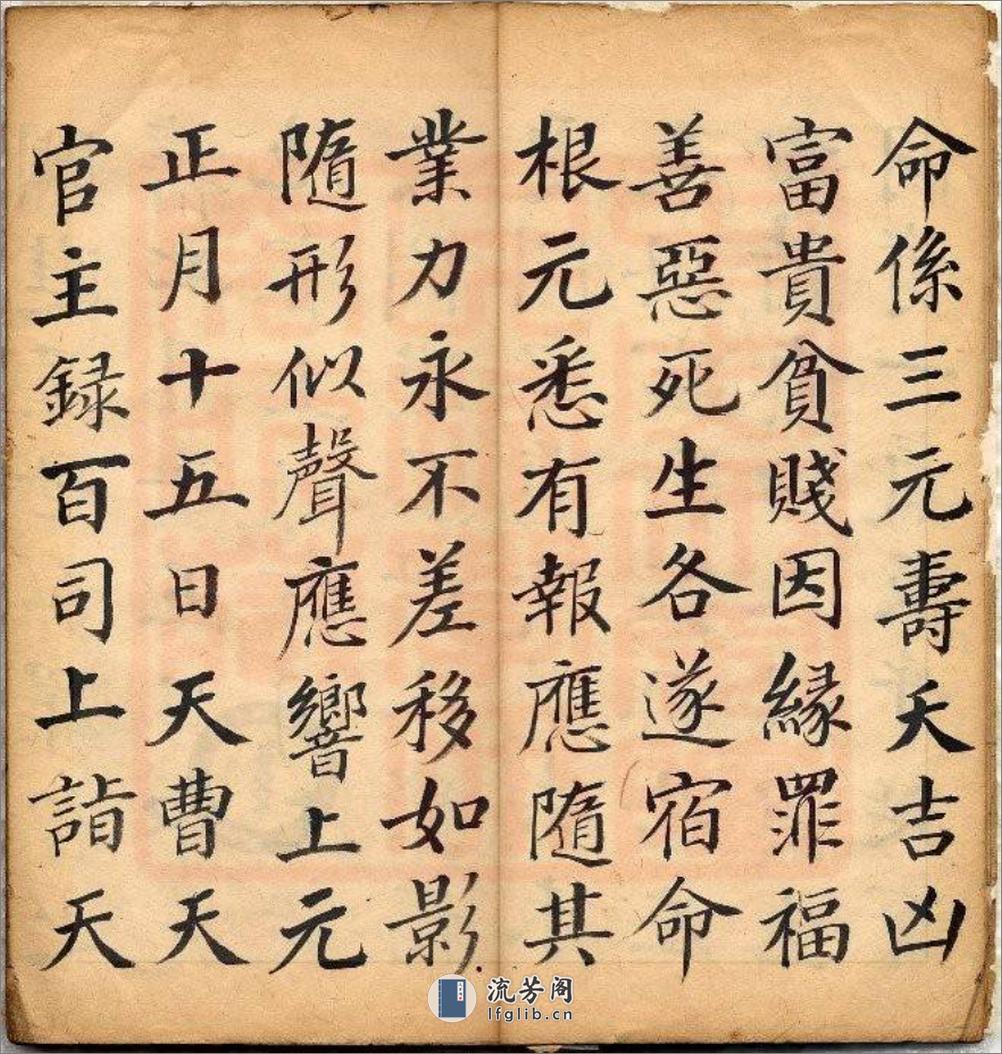 命係三元壽夭吉凶
富貴貧賤因緣罪福
善惡死生各遂宿命
根元悉有報應隨其
業力永不差移如影
隨形似聲應響上元
正月十五日天曹天
官主録百司上詣天
流芳阁
lfglib.cn